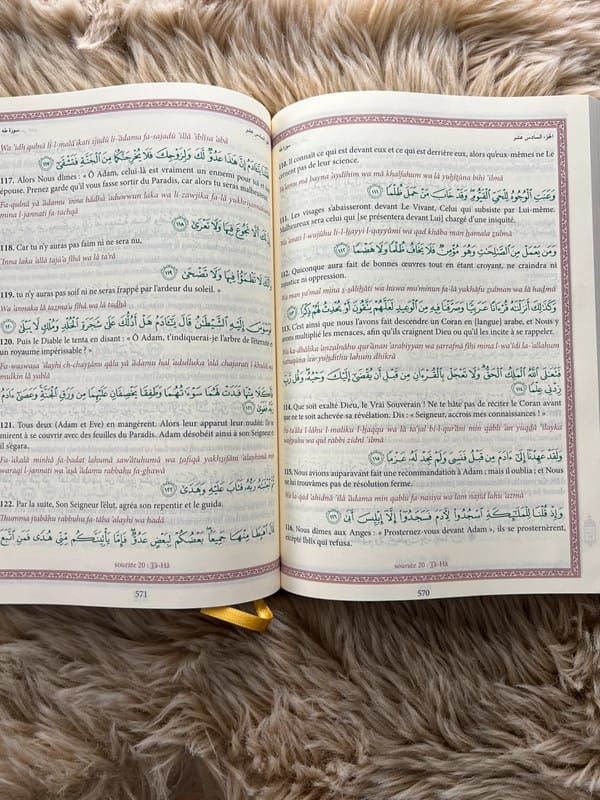 الجزء السادس عشر
سورة طه
110. Il connaît ce qui est devant eux et ce qui est derrière eux, alors qu'eux-mêmes ne Le
pas de leur science.
mā bayna aydīhim wa mā khalfahum wa lā yuḥīṭūna bihi 'ilmā
وَعَنَتِ الْوُجُوهُ لِلْحَيِّ الْقَيُّومِ وَقَدْ خَابَ مَنْ حَمَلَ ظُلْمًا ١١١
111. Les visages s'abaisseront devant Le Vivant, Celui qui subsiste par Lui-même.
Malheureux sera celui qui [se présentera devant Lui] chargé d'une iniquité.
Wa 'anati l-wujūhu li-l-ḥayyi l-qayyūmi wa qad khāba man ḥamala ẓulmā
وَمَن يَعْمَلْ مِنَ الصَّالِحَاتِ وَهُوَ مُؤْمِنٌ فَلَا يَخَافُ ظُلْمًا وَلَا هَضْمًا ١١٢
112. Quiconque aura fait de bonnes œuvres tout en étant croyant, ne craindra ni
injustice ni oppression.
Wa man ya'mal mina ṣ-ṣāliḥāti wa huwa mu'minun fa-lā yakhāfu ẓulman wa lā haḍmā
وَكَذَٰلِكَ أَنزَلْنَاهُ قُرْآنًا عَرَبِيًّا وَصَرَّفْنَا فِيهِ مِنَ الْوَعِيدِ لَعَلَّهُمْ يَتَّقُونَ أَوْ يُحْدِثُ لَهُمْ ذِكْرًا ١١٣
113. C'est ainsi que nous l'avons fait descendre un Coran en [langue] arabe, et Nous y
avons multiplié les menaces, afin qu'ils craignent Dieu ou qu'il les incite à se rappeler.
Wa ka-dhālika 'anzalnāhu qur'ānan 'arabiyyan wa ṣarrafnā fīhi mina l-wa'īdi la-'allahum
yattaqūna 'aw yuḥdithu lahum dhikrā
فَتَعَالَى اللَّهُ الْمَلِكُ الْحَقُّ وَلَا تَعْجَلْ بِالْقُرْآنِ مِن قَبْلِ أَن يُقْضَىٰ إِلَيْكَ وَحْيُهُ وَقُل رَّبِّ
زِدْنِي عِلْمًا ١١٤
114. Que soit exalté Dieu, le Vrai Souverain ! Ne te hâte pas de réciter le Coran avant
que ne te soit achevée sa révélation. Dis : « Seigneur, accrois mes connaissances ! »
Fa-ta'āla l-lāhu l-maliku l-ḥaqqu wa lā ta'jal bi-l-qur'āni min qabli 'an yuqḍā 'ilayka
waḥyuhu wa qul rabbi zidnī 'ilmā
وَلَقَدْ عَهِدْنَا إِلَىٰ آدَمَ مِن قَبْلُ فَنَسِيَ وَلَمْ نَجِدْ لَهُ عَزْمًا ١١٥
115. Nous avions auparavant fait une recommandation à Adam ; mais il oublia ; et Nous
ne lui trouvâmes pas de résolution ferme.
Wa la-qad 'ahidnā 'ilā 'ādama min qablu fa-nasiya wa lam najid lahu 'azmā
وَإِذْ قُلْنَا لِلْمَلَائِكَةِ اسْجُدُوا لِآدَمَ فَسَجَدُوا إِلَّا إِبْلِيسَ أَبَىٰ ١١٦
116. Nous dîmes aux Anges : « Prosternez-vous devant Adam », ils se prosternèrent,
excepté Iblis qui refusa.
sourate 20 : Ṭā-Hā
570
سورة طه
السادس عشر
Wa 'idh qulnā li-l-malā'ikati sjudū li-'ādama fa-sajadū 'illā 'iblīsa 'abā
يَا آدَمُ إِنَّ هَٰذَا عَدُوٌّ لَّكَ وَلِزَوْجِكَ فَلَا يُخْرِجَنَّكُمَا مِنَ الْجَنَّةِ فَتَشْقَىٰ ١١٧
117. Alors Nous dîmes : « Ô Adam, celui-là est vraiment un ennemi pour toi et
épouse. Prenez garde qu'il vous fasse sortir du Paradis, car alors tu seras malheureux
Fa-qulnā yā 'ādamu inna hādhā 'aduwwun laka wa li-zawjika fa-lā yukhrijannakumā
mina l-jannati fa-tachqā
لَكَ أَلَّا تَجُوعَ فِيهَا وَلَا تَعْرَىٰ ١١٨
118. Car tu n'y auras pas faim ni ne sera nu,
'Inna laka 'allā tajū'a fīhā wa lā ta'rā
لَا تَظْمَأُ فِيهَا وَلَا تَضْحَىٰ ١١٩
119. tu n'y auras pas soif ni ne seras frappé par l'ardeur du soleil. »
Wa 'innaka lā taẓma'u fīhā wa lā taḍḥā
فَوَسْوَسَ إِلَيْهِ الشَّيْطَانُ قَالَ يَا آدَمُ هَلْ أَدُلُّكَ عَلَىٰ شَجَرَةِ الْخُلْدِ وَمُلْكٍ لَّا يَبْلَىٰ ١٢٠
120. Puis le Diable le tenta en disant : « Ô Adam, t'indiquerai-je l'arbre de l'éternité et
un royaume impérissable ? »
Fa-waswasa 'ilayhi ch-chayṭānu qāla yā 'ādamu hal 'adulluka 'alā chajarati l-khuldi
mulkin lā yablā
فَأَكَلَا مِنْهَا فَبَدَتْ لَهُمَا سَوْآتُهُمَا وَطَفِقَا يَخْصِفَانِ عَلَيْهِمَا مِن وَرَقِ الْجَنَّةِ وَعَصَىٰ آدَمُ
رَبَّهُ فَغَوَىٰ ١٢١
121. Tous deux (Adam et Eve) en mangèrent. Alors leur apparut leur nudité. Ils
mirent à se couvrir avec des feuilles du Paradis. Adam désobéit ainsi à son Seigneur
il s'égara.
Fa-'akalā minhā fa-badat lahumā saw'ātuhumā wa ṭafiqā yakhṣifāni 'alayhimā min
waraqi l-jannati wa 'aṣā 'ādamu rabbahu fa-ghawā
ثُمَّ اجْتَبَاهُ رَبُّهُ فَتَابَ عَلَيْهِ وَهَدَىٰ ١٢٢
122. Par la suite, Son Seigneur l'élut, agréa son repentir et le guida.
Thumma jtabāhu rabbuhu fa-tāba 'alayhi wa hadā
قَالَ اهْبِطَا مِنْهَا جَمِيعًا بَعْضُكُمْ لِبَعْضٍ عَدُوٌّ فَإِمَّا يَأْتِيَنَّكُم مِّنِّي هُدًى فَمَنِ اتَّبَعَ
sourate 20 : Ṭā-Hā
571